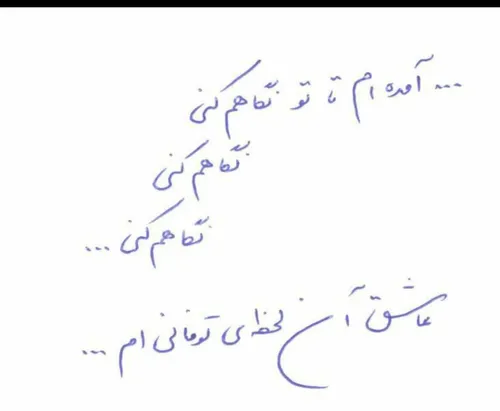 ... آمده ام تا تو نگاهم کنی
نگاهم کنی
نگاهم کنی ...
عاشق آن لحظه‌ی توفانی ام ...